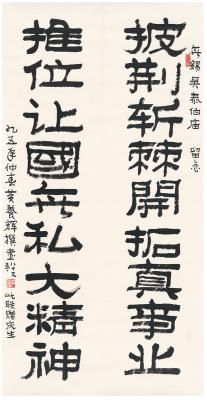 无锡吴泰伯庙 留念
披荆斩棘開拓真事业
推位让國无私大精神
九五年仲春黄養辉撰書
此联赠宗生